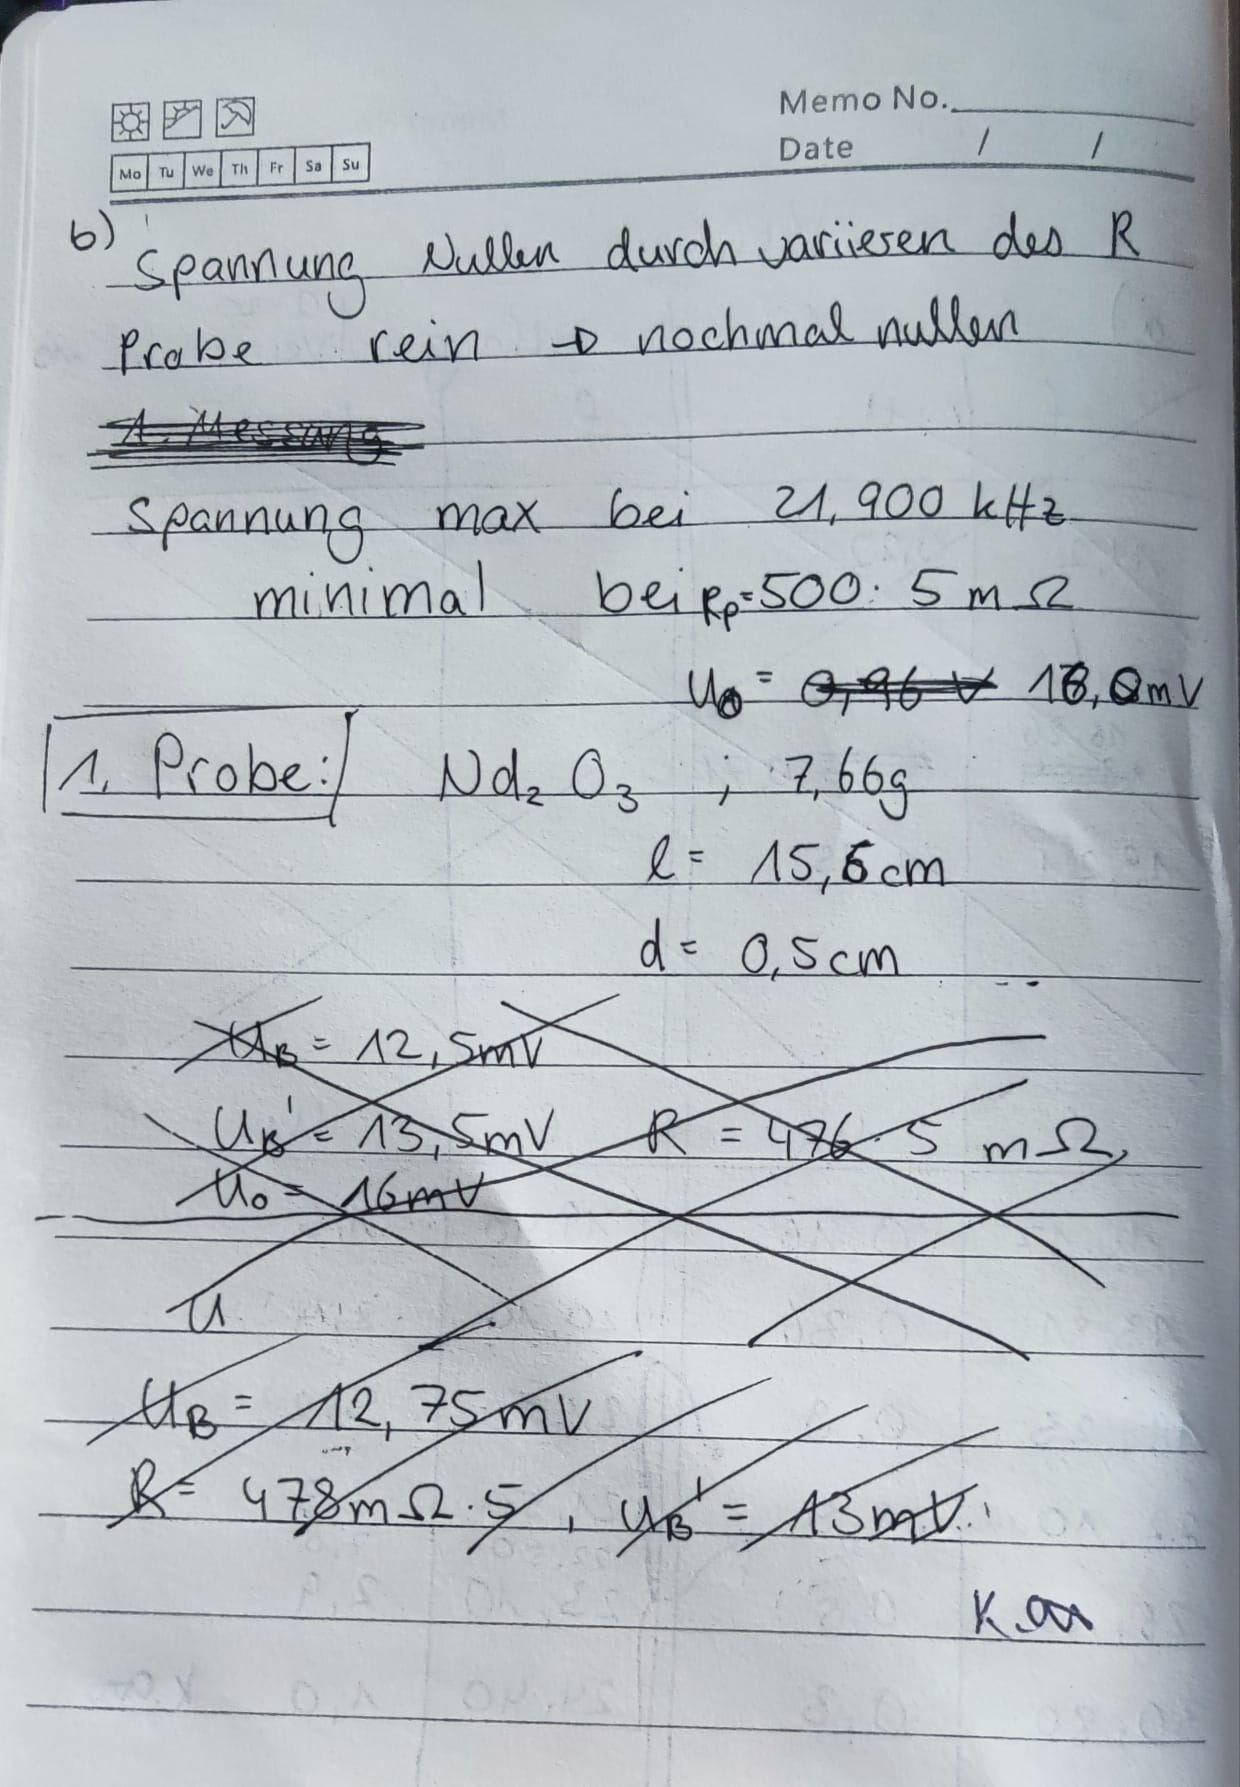 Memo No.
Date / /
Mo Tu We Th Fr Sa Su
b) Spannung Nullen durch variieren des R
Probe rein → nochmal nullen
1. Messung
Spannung max bei 21,900 kHz
minimal bei Rp=500· 5 mΩ
U0 = 0,96 V 18,0mV
1. Probe: Nd2O3 ; 7,66g
l= 15,6cm
d= 0,5cm
UB = 12,5mV
UB' = 13,5mV R = 476·5 mΩ
U0 = 16mV
U
UB = 12,75mV
R= 478mΩ·5, UB' = 13mV